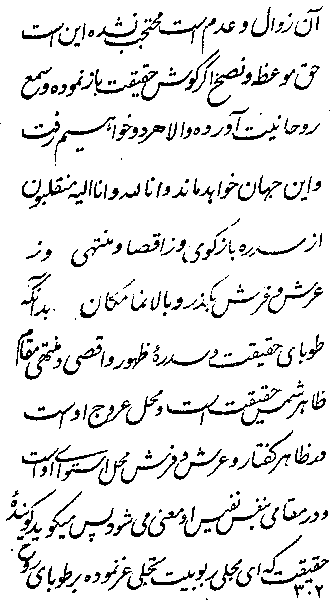 آن زوال و عدم است محتجب نشده این است
حق موعظه و نصح اگر گوش حقیقت باز نموده و سمع
روحانیت آورده والا هر دو خواهیم رفت
و این جهان خواهد ماند وانا لله وانا الیه منقلبون
از سدره بازگوی وز اقصا و منتهی وز
عرش و فرش بگذر و بالا نما مکان بدانکه
طوبای حقیقت و سدرهٔ ظهور و اقصی و منتهی مقام
ظاهر شمس حقیقت است و محل عروج اوست
در ظاهر گفتار و عرش و فرش محل استوای اوست
و در مقامی بنفس نفیس او معنی می شود پس میگوید گویندهٔ
حقیقت که ای مجلی ربوبیت تجلی عز نموده بر طوبای روح
۳۰۲